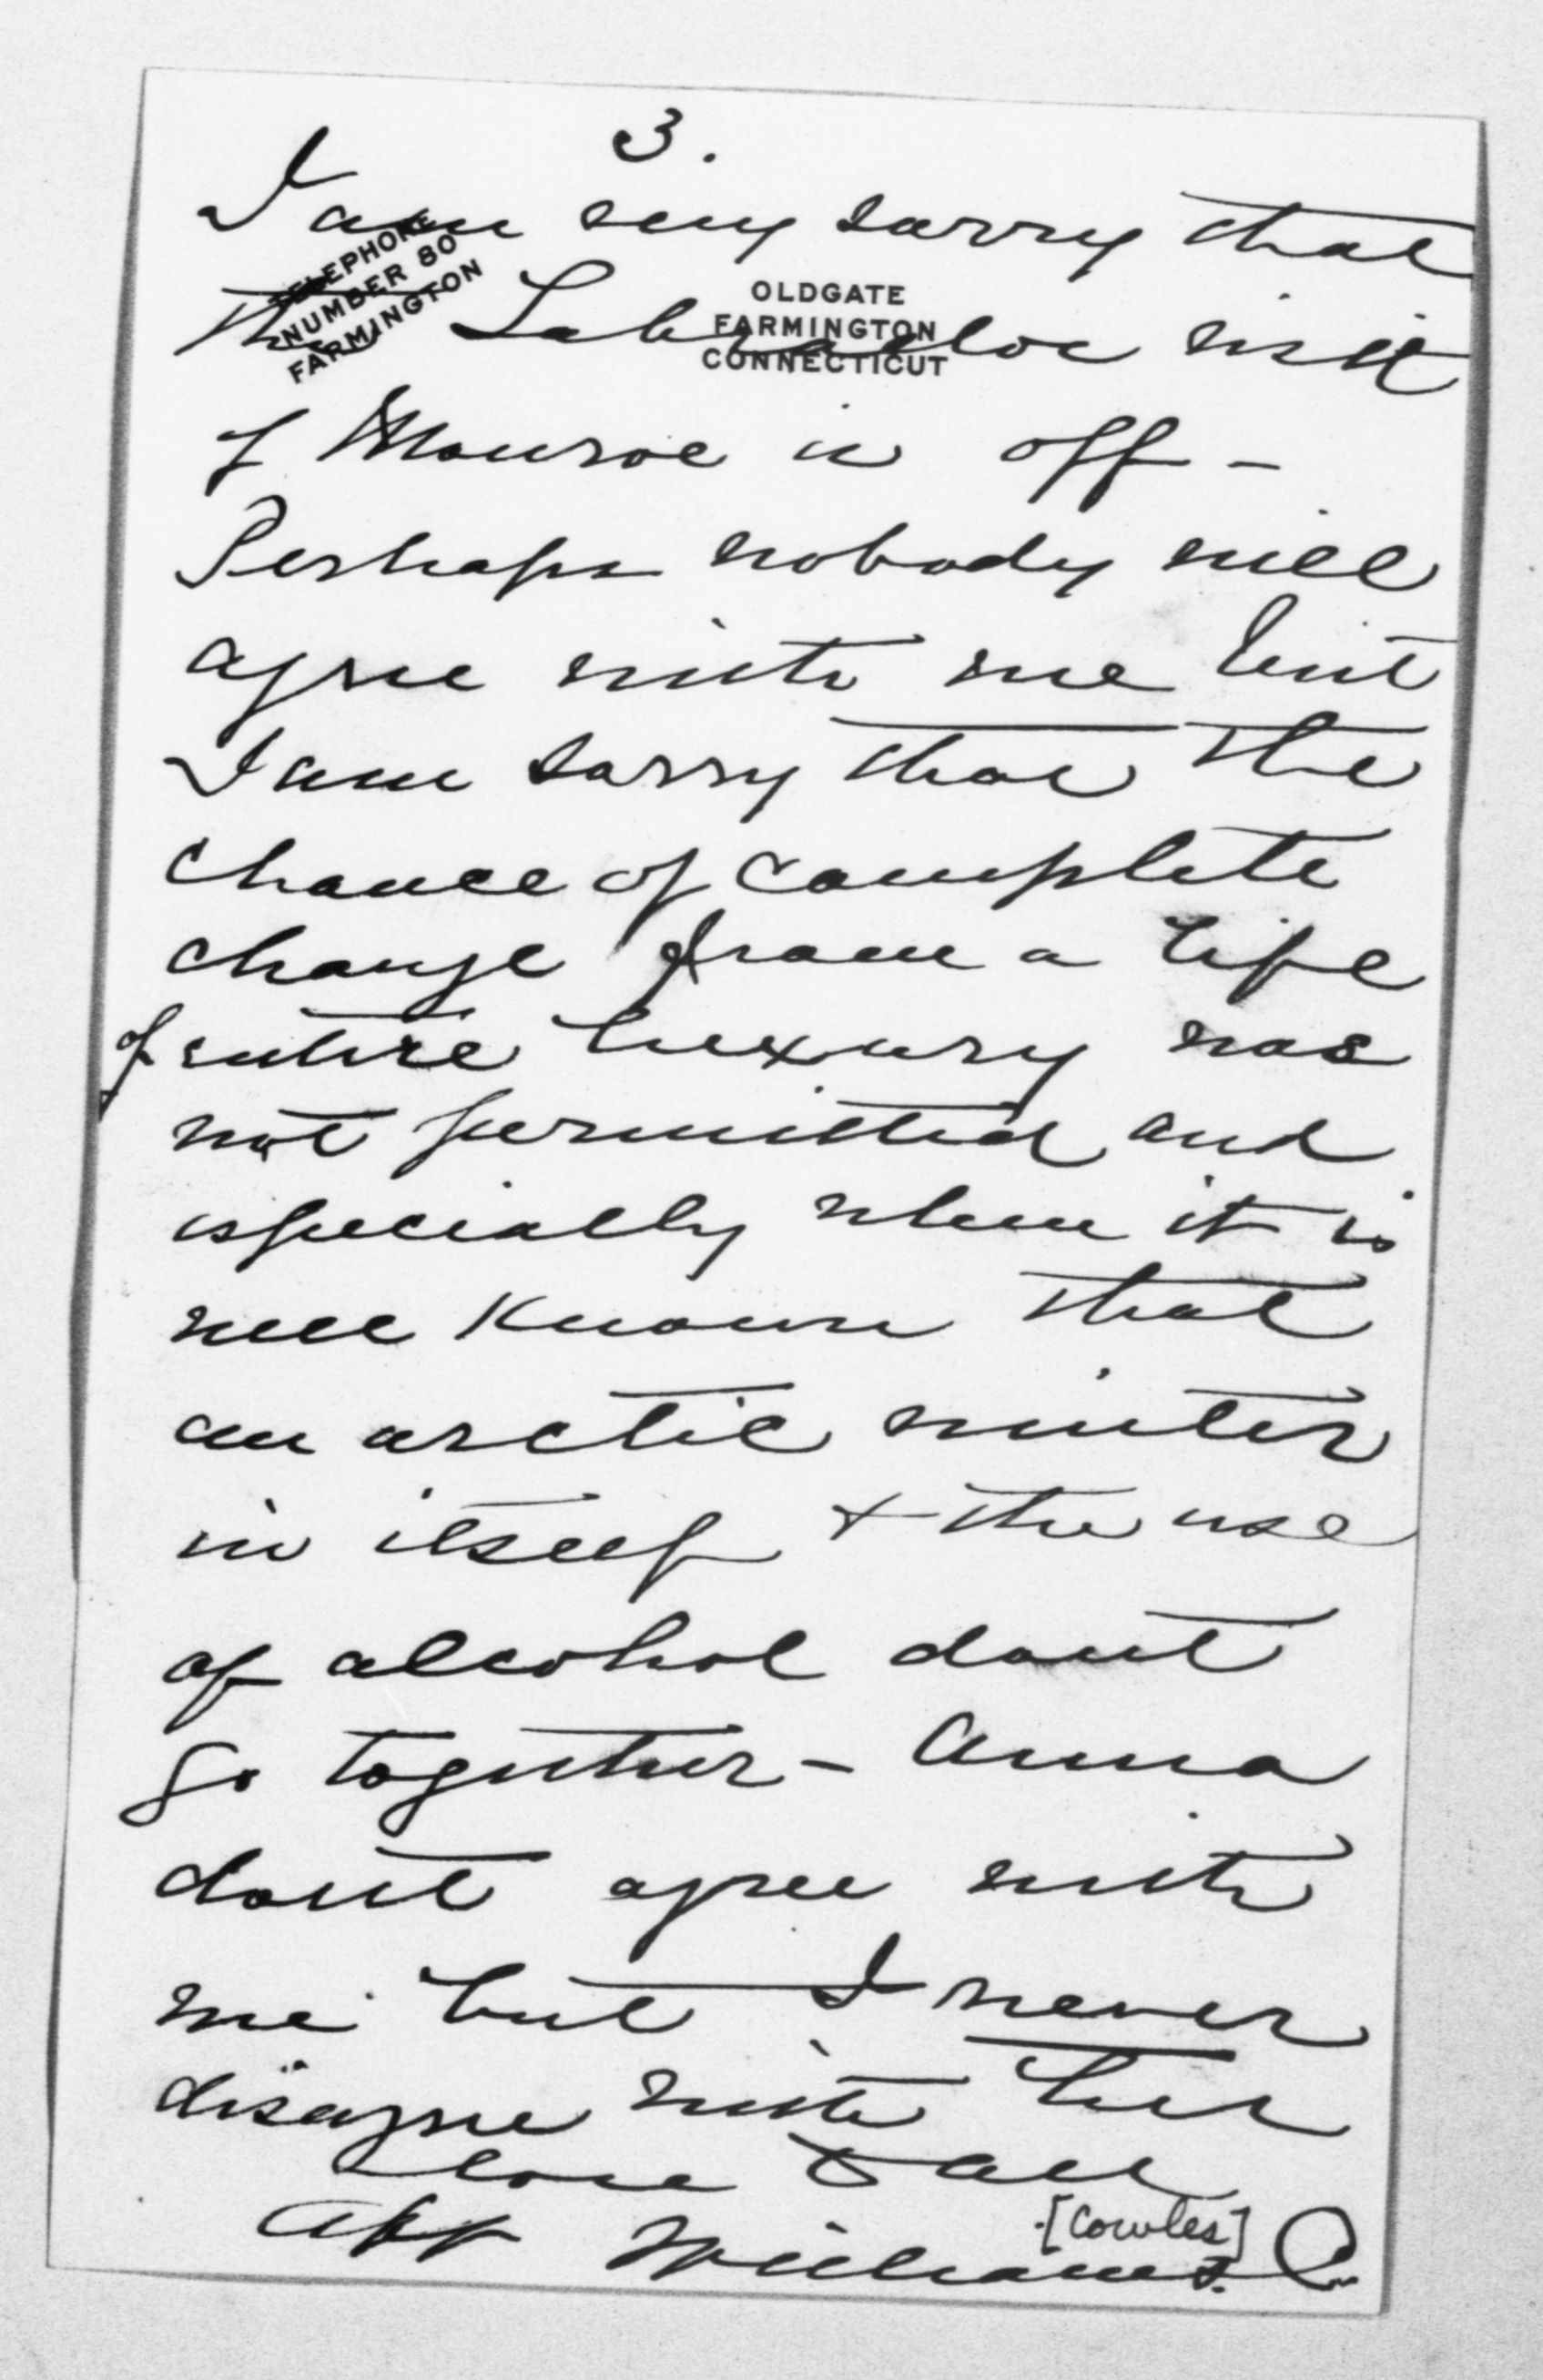 3.
I am very sorry that
TELEPHONE
NUMBER 80
FARMINGTON
OLDGATE
FARMINGTON
CONNECTICUT
the Labrador visit
of Monroe is off -
Perhaps nobody will
agree with me but
I am sorry that the
chance of complete
change from a life
of entire luxury was
not permitted and
especially when it is
well known that
an arctic winter
in itself + the use
of alcohol dont
go together - Anna
dont agree with
me but I never
disagree with her
Love to all
Aff
[Cowles]
William S. C.